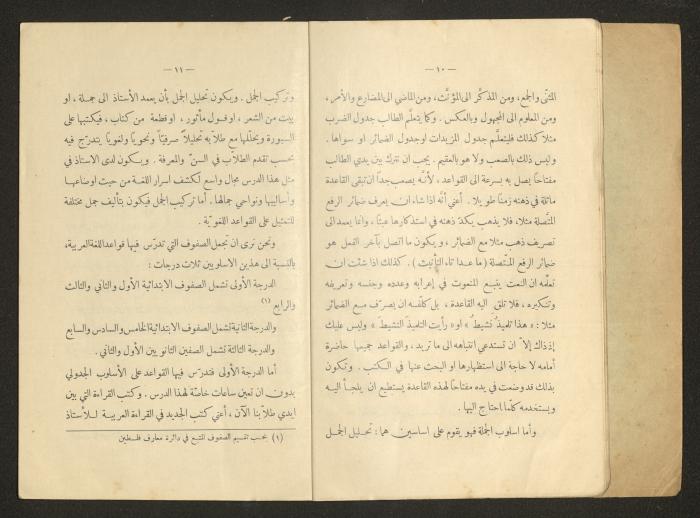 — ١٠ —
المثنّى والجمع، ومن المذكّر الى المؤنّث، ومن الماضي الى المضارع والأمر،
ومن المعلوم الى المجهول وبالعكس . وكما يتعلّم الطالب جدول الضرب
مثلا كذلك فليتعلّم جدول المزيدات او جدول الضمائر او سواها .
وليس ذلك بالصعب ولا هو بالعقيم . يجب ان نترك بين يدي الطالب
مفتاحاً يصل به بسرعة الى القواعد ، لأنّه يصعب جداً ان تبقى القاعدة
ماثلة في ذهنه زمنًا طويلا . أعني أنّه اذا شاء ان يعرف ضمائر الرفع
المتّصلة مثلا، فلا يذهب بكدّ ذهنه في استذكارها عبثًا ، وانما يعمد الى
تصريف ذهب مثلا مع الضمائر ، ويكون ما اتصل بآخر الفعل هو
ضمائر الرفع المتّصلة ( ما عدا تاء التأنيث ) . كذلك اذا شئت ان
تعلّمه ان النعت يتبع المنعوت في إعرابه وعدده وجنسه وتعريفه
وتنكيره ، فلا تلق اليه القاعدة ، بل كلّفه ان يصرّف مع الضمائر
مثلا : « هذا تلميذٌ نَشيطٌ » او « رأيت التلميذَ النشيطَ » وليس عليك
إذذاك إلاّ ان تستدعي انتباهه الى ما تريد ، والقواعد جميعها حاضرة
أمامه لا حاجة الى استظهارها او البحث عنها في الكتب . وتكون
بذلك قد وضعت في يده مفتاحًا لهذه القاعدة يستطيع ان يلجأ اليه
ويستخدمه كلّما احتاج اليها .
وأما اسلوب الجملة فهو يقوم على اساسين هما : تحليل الجمل
— ١١ —
وتركيب الجمل . ويكون تحليل الجمل بأن يعمد الأستاذ الى جملة ، او
بيت من الشعر ، او قول مأثور ، او قطعة من كتاب ، فيكتبها على
السبورة ويحلّلها مع طلاّبه تحليلاً صرفيّاً ونحويًا ولغويًا يتدرّج فيه
بحسب تقدم الطلّاب في السنّ والمعرفة . ويكون لدى الاستاذ في
مثل هذا الدرس مجال واسع لكشف اسرار اللغة من حيث اوضاعها
وأساليبها ونواحي جمالها . أما تركيب الجمل فيكون بتأليف جمل مختلفة
للتمثيل على القواعد اللغويّة .
ونحن نرى ان تجعل الصفوف التي تدرّس فيها قواعد اللغة العربية،
بالنسبة الى هذين الاسلوبين ثلاث درجات :
الدرجة الأولى تشمل الصفوف الابتدائية الأول والثاني والثالث
والرابع (١)
والدرجة الثانية تشمل الصفوف الابتدائية الخامس والسادس والسابع
والدرجة الثالثة تشمل الصفين الثانويين الأول والثاني .
أما الدرجة الأولى فتدرّس فيها القواعد على الأسلوب الجدولي
بدون ان تعين ساعات خاصّة لهذا الدرس . وكتب القراءة التي بين
ايدي طلاّبنا الآن ، أعني كتب الجديد في القراءة العربية للأستاذ
(١) بحسب تقسيم الصفوف المتّبع في دائرة معارف فلسطين